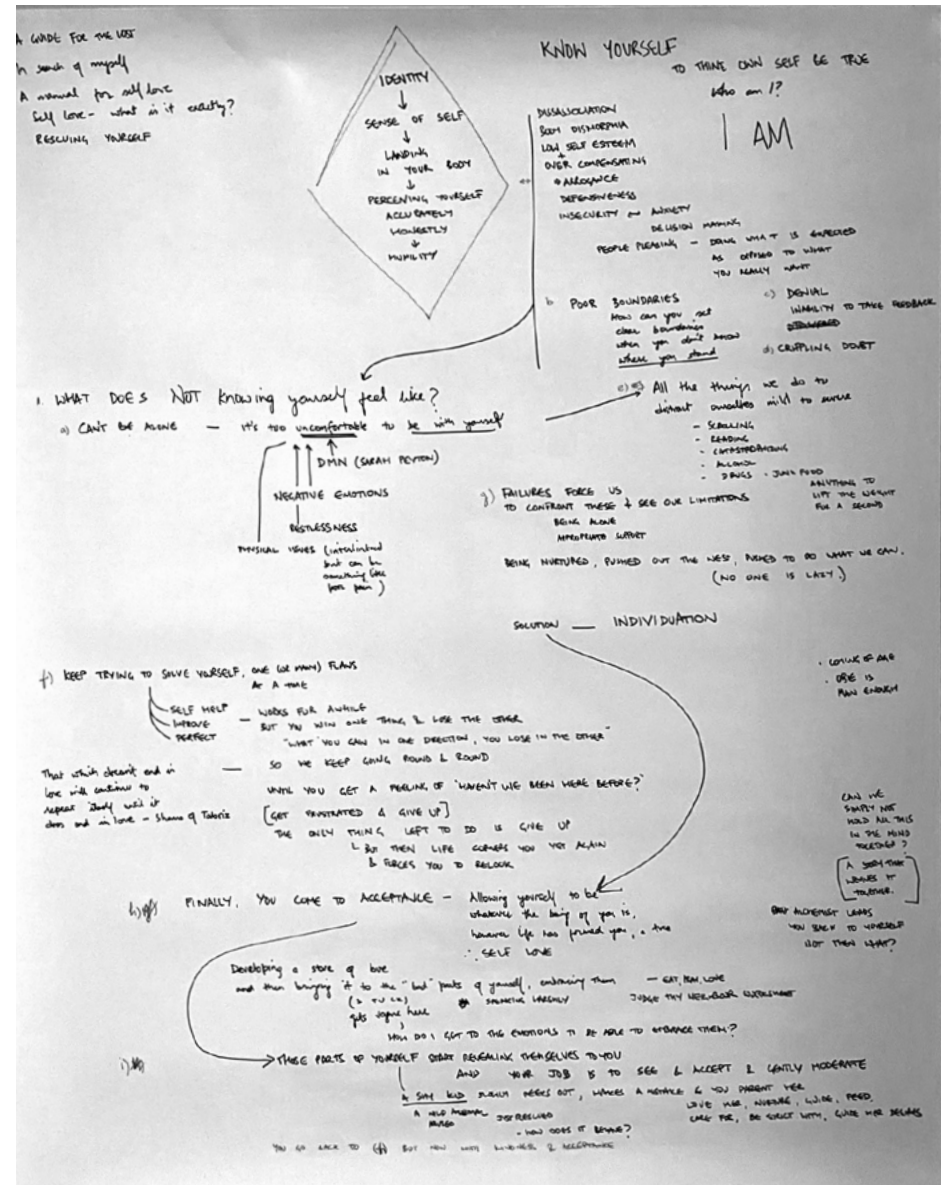 A GUIDE FOR THE LOST
In search of myself
A manual for self love
Self love - what is it exactly?
RESCUING YOURSELF
IDENTITY
SENSE OF SELF
LANDING
IN YOUR BODY
PERCEIVING YOURSELF
ACCURATELY
HONESTLY
HUMILITY
KNOW YOURSELF
TO THINE OWN SELF BE TRUE
Who am I?
I AM
DISSASOCIATION
BODY DISMORPHIA
LOW SELF ESTEEM
+
OVER COMPENSATING
ARROGANCE
DEFENSIVENESS
INSECURITY ANXIETY
DECISION MAKING
PEOPLE PLEASING - DOING WHAT IS EXPECTED
AS OPPOSED TO WHAT
YOU REALLY WANT
b POOR BOUNDARIES
How can you set
clear boundaries
when you don't know
where you stand
c) DENIAL
INABILITY TO TAKE FEEDBACK
d) CRIPPLING DOUBT
1. WHAT DOES NOT knowing yourself feel like?
a) CAN'T BE ALONE - it's too uncomfortable to be with yourself
DMN (SARAH PEYTON)
NEGATIVE EMOTIONS
RESTLESSNESS
PHYSICAL ISSUES (interlinked
but can be
something like
pain)
e) All the things we do to
distract ourselves
- SCROLLING
- READING
- CATASTROPHIZING
- ALCOHOL
- DRUGS - JUNK FOOD
ANYTHING TO
LIFT THE WEIGHT
FOR A SECOND
g) FAILURES FORCE US
TO CONFRONT THESE & SEE OUR LIMITATIONS
BEING ALONE
APPROPRIATE SUPPORT
BEING NURTURED, PUSHED OUT THE NEST, PUSHED TO DO WHAT WE CAN.
(NO ONE IS LAZY.)
SOLUTION — INDIVIDUATION
. COMING OF AGE
MAN ENOUGH
f) KEEP TRYING TO SOLVE YOURSELF, ONE (OR MANY) FLAWS
AT A TIME
SELF HELP
IMPROVE
PERFECT
- WORKS FOR AWHILE
BUT YOU WIN ONE THING & LOSE THE OTHER
"WHAT YOU GAIN IN ONE DIRECTION, YOU LOSE IN THE OTHER"
SO WE KEEP GOING ROUND & ROUND
That which doesn't end in
love will continue to
repeat itself until it
does end in love - Shams of Tabriz
UNTIL YOU GET A FEELING OF "HAVEN'T WE BEEN HERE BEFORE?"
[GET FRUSTRATED & GIVE UP]
THE ONLY THING LEFT TO DO IS GIVE UP
BUT THEN LIFE CORNERS YOU YET AGAIN
& FORCES YOU TO RELOOK
CAN WE
SIMPLY NOT
HOLD ALL THIS
IN THE MIND
TOGETHER?
[A STORY THAT
WEAVES IT
TOGETHER.]
ALCHEMIST LEADS
YOU BACK TO YOURSELF
WHAT?
h) FINALLY, YOU COME TO ACCEPTANCE - Allowing yourself to be
whatever the being of you is,
however life has formed you,
∴ SELF LOVE
Developing a store of love
and then bringing it to the "bad" parts of yourself, embracing them
- EAT, PRAY, LOVE
gets vague here
JUDGE THY NEIGHBOUR WORKSHEET
HOW DO I GET TO THE EMOTIONS TO BE ABLE TO EMBRACE THEM?
i) THESE PARTS OF YOURSELF START REVEALING THEMSELVES TO YOU
AND YOUR JOB IS TO SEE & ACCEPT & GENTLY MODERATE
A SHY KID PEEKS OUT, MAKES A MISTAKE & YOU PARENT HER
LOVE HER, NURTURE, GUIDE, FEED,
CARE FOR, BE STRICT WITH, GUIDE HER DESIRES
A WILD ANIMAL
JUST RESCUED
- HOW DOES IT BEHAVE?
YOU GO BACK TO (f) BUT NOW WITH KINDNESS & ACCEPTANCE